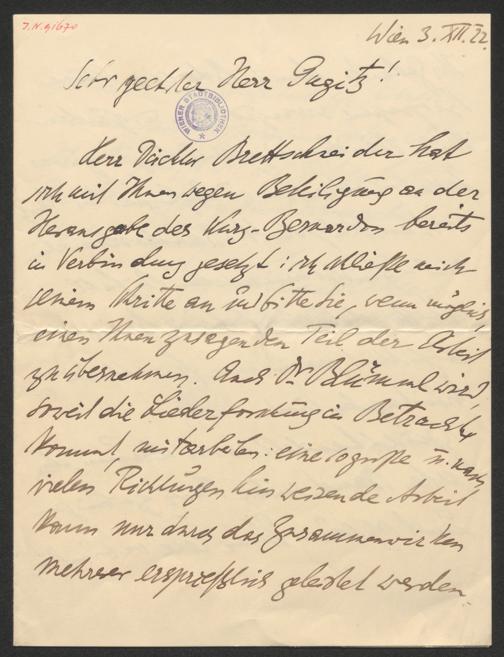 J.N. 91670
Wien 3. XII. 22
Sehr geehrter Herr Gugitz!
WIENER STADTBIBLIOTHEK
Herr Dichter Brettschneider hat
sich mit Ihnen wegen Beteiligung an der
Herausgabe des Kurz-Bernardon bereits
in Verbindung gesetzt: ich schließe mich
seinem Schritte an und bitte Sie, wenn möglich,
einen Ihnen zusagenden Teil der Arbeit
zu übernehmen. Auch Dr. Blümml wird,
soweit die Liederforschung in Betracht
kommt, mitarbeiten: eine so große u. nach
vielen Richtungen hinweisende Arbeit
kann nur durch das Zusammenwirken
mehrerer ersprießlich geleistet werden.